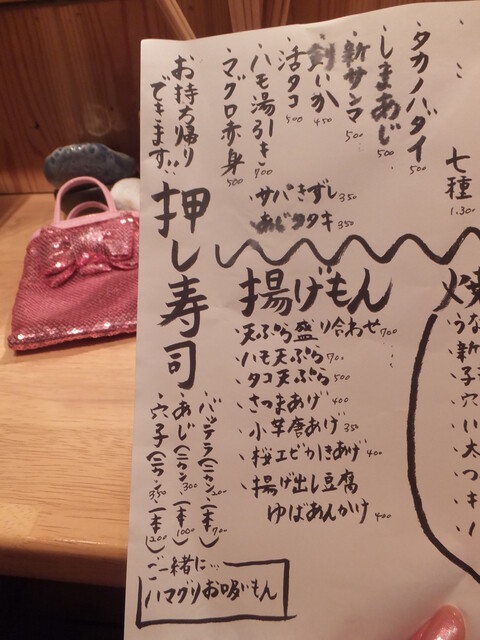 七種
1.300
・タカノバダイ 500
・しまあじ 500
・新サンマ 500
・剣いか 450
・活タコ 500
・ハモ湯引き 700
・マグロ赤身 500
・サバきずし 350
・あじタタキ 350
お持ち帰り
できます!!
押し寿司
・バッテラ(ニカン)200(一本)700
・あじ(ニカン)300(一本)1000
・穴子(ニカン)350(一本)1200
ご一緒に…
ハマグリお吸いもん
揚げもん
・天ぷら盛り合わせ 700
・ハモ天ぷら 700
・タコ天ぷら 500
・さつまあげ 400
・小芋唐あげ 350
・桜エビかきあげ 400
・揚げ出し豆腐
ゆばあんかけ 400
焼
・うな
・新
・子
・穴
・い
・太
・つ
・キ